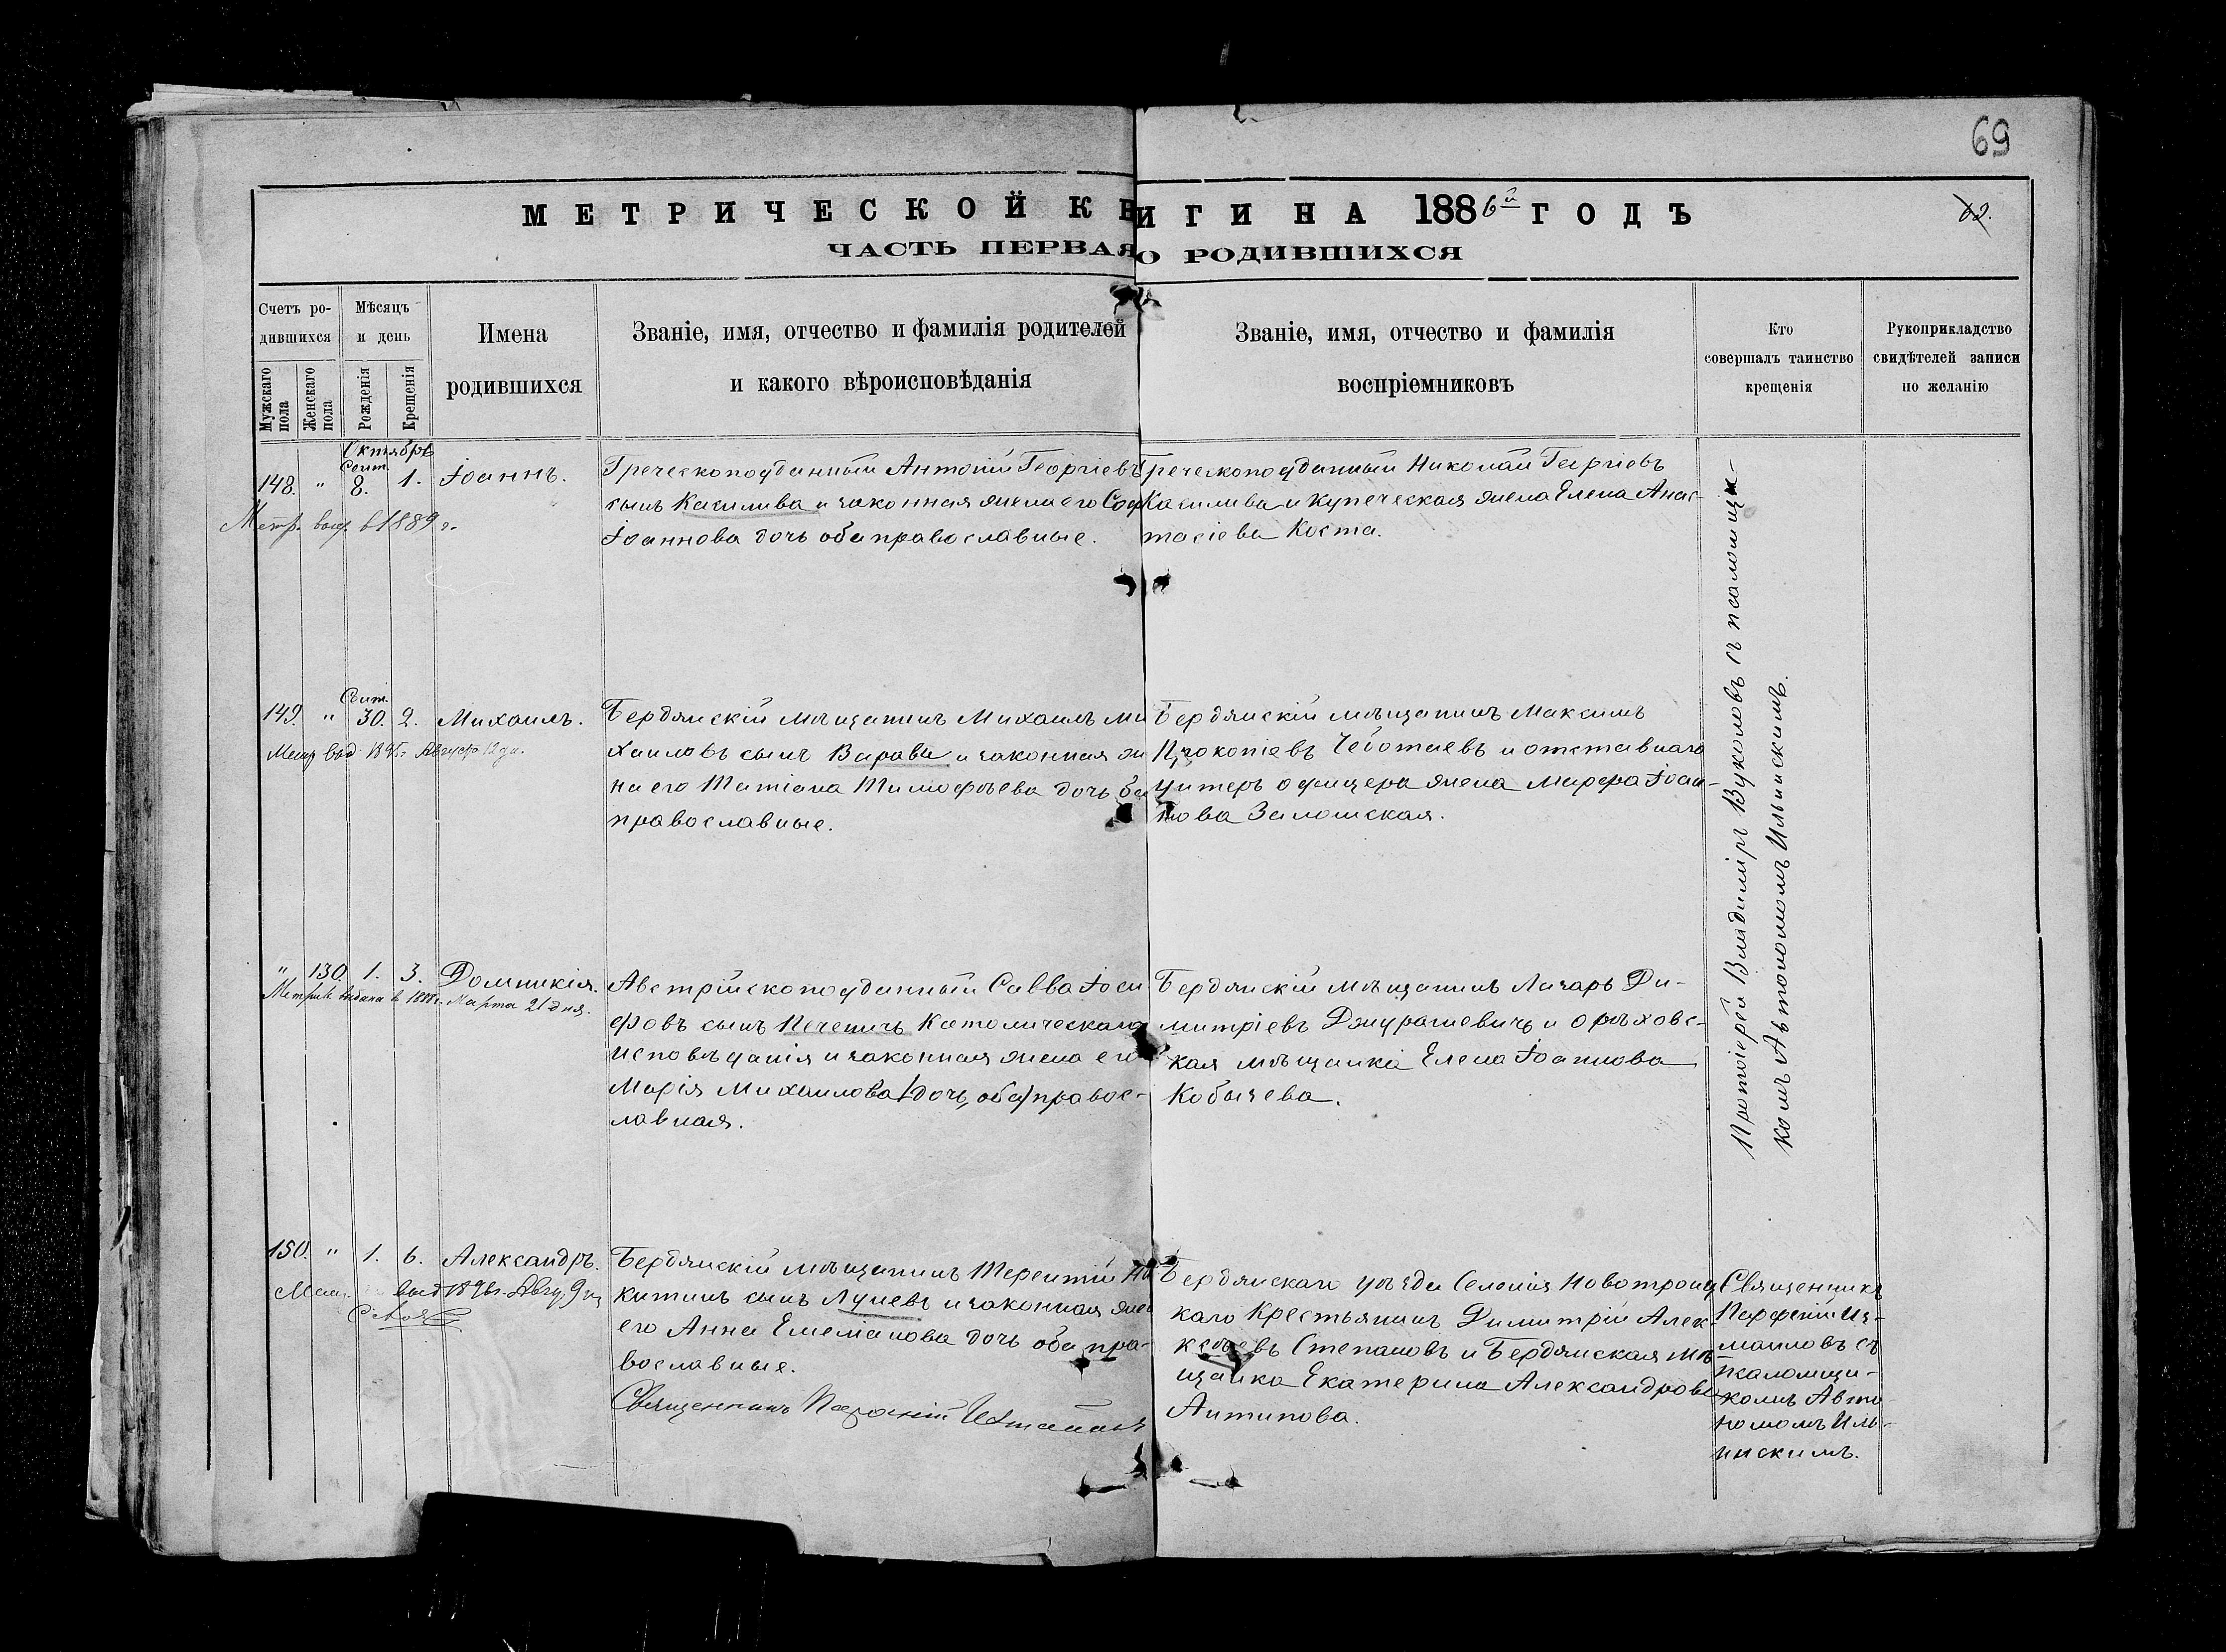 69
МЕТРИЧЕСКОЙ КНИГИ НА 1886й ГОДЪ
69.
ЧАСТЬ ПЕРВАЯ О РОДИВШИХСЯ
Счетъ ро-
дившихся
Мужскаго
пола
Женскаго
пола
Мѣсяцъ
и день
Рожденія
Крещенія
Имена
родившихся
Званіе, имя, отчество и фамилія родителей
и какого вѣроисповѣданія
Званіе, имя, отчество и фамилія
воспріемниковъ
Кто
совершалъ таинство
крещенія
Рукоприкладство
свидѣтелей записи
по желанію
Октябрь
Сент.
148. " 8. 1. Іоаннъ.
Метр. выд. в 1889 г.
Греческоподданный Антоній Георгіевъ
сынъ Касилива и законная жена его Соф
Іоаннова дочь оба православные.
Греческоподданный Николай Георгіевъ
Касилива и купеческая жена Елена Анас-
тасіева Коста.
Сент.
149. " 30. 2. Михаилъ.
Метр выд 1895 г. Августа 12 дн.
Бердянскій мѣщанинъ Михаилъ Ми
хаиловъ сынъ Варава и законная же
на его Татіана Тимофѣева дочь оба
православные.
Бердянскій мѣщанинъ Максимъ
Прокопіевъ Чеботаевъ и отставнаго
унтеръ офицера жена Марфа Іоан-
нова Залошская.
" 130. 1. 3. Домникія.
Метрик. выдана в 1888 г. Марта 21 дня.
Австрійскоподданный Савва Іоси
фовъ сынъ Печеничъ Католическаго
исповѣданія и законная жена его
Марія Михаилова дочь, оба) правос-
лавная.
Бердянскій мѣщанинъ Лазарь Ди-
митріевъ Джурашевичъ и Орѣховс-
кая мѣщанка Елена Іоаннова
Кобызева.
Протоіерей Владиміръ Вуколовъ съ псаломщи-
комъ Автономомъ Ильинскимъ.
150. " 1. 6. Александръ.
выд 1896 г. Авгу. 9 дн
Бердянскій мѣщанинъ Терентій Ни
китинъ сынъ Луневъ и законная жен
его Анна Емеліанова дочь оба пра-
вославные.
Священникъ Парѳеній Измаиловъ
Бердянскаго уѣзда Селенія Новотроиц
каго Крестьянинъ Димитрій Алек-
сѣевъ Степановъ и Бердянская мѣ-
щанка Екатерина Александрова
Антипова.
Священникъ
Парѳеній Из-
маиловъ съ
псаломщи-
комъ Авто-
номомъ Иль-
инскимъ.